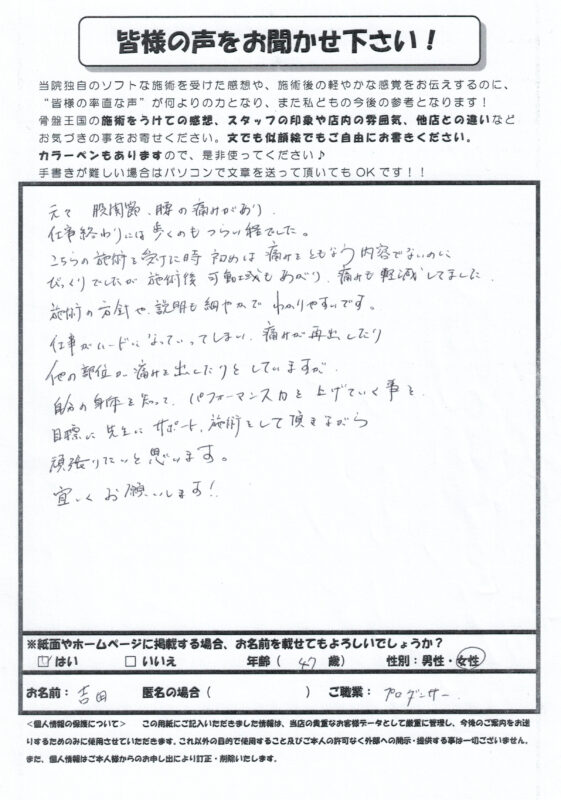 皆様の声をお聞かせ下さい！
当院独自のソフトな施術を受けた感想や、施術後の軽やかな感覚をお伝えするのに、
“皆様の率直な声”が何よりの力となり、また私どもの今後の参考となります！
骨盤王国の施術をうけての感想、スタッフの印象や店内の雰囲気、他店との違いなど
お気づきの事をお寄せください。文でも似顔絵でもご自由にお書きください。
カラーペンもありますので、是非使ってください♪
手書きが難しい場合はパソコンで文章を送って頂いてもOKです！！
元々 股関節、腰の痛みがあり、
仕事終わりには歩くのもつらい程でした。
こちらの施術を受けた時 初めは 痛みをともなう内容でないのに
びっくりでしたが 施術後 可動域もあがり、痛みも軽減してました。
施術の方針や、説明も細やかで わかりやすいです。
仕事がハードになっていってしまい、痛みが再出したり
他の部位が痛みを出したりをしていますが、
自分の身体を知って、パフォーマンス力を上げていく事を
目標に先生にサポート、施術をして頂きながら
頑張りたいと思います。
宜しくお願いします！
※紙面やホームページに掲載する場合、お名前を載せてもよろしいでしょうか？
はい □ いいえ 年齢（ 47 歳） 性別：男性・女性
お名前： 吉田 匿名の場合（ ） ご職業：プロダンサー．
＜個人情報の保護について＞ この用紙にご記入いただきました情報は、当店の貴重なお客様データとして厳重に管理し、今後のご案内をお送
りするためのみに使用させていただきます。これ以外の目的で使用すること及びご本人の許可なく外部への開示・提供する事は一切ございません。
また、個人情報はご本人様からのお申し出により訂正・削除いたします。